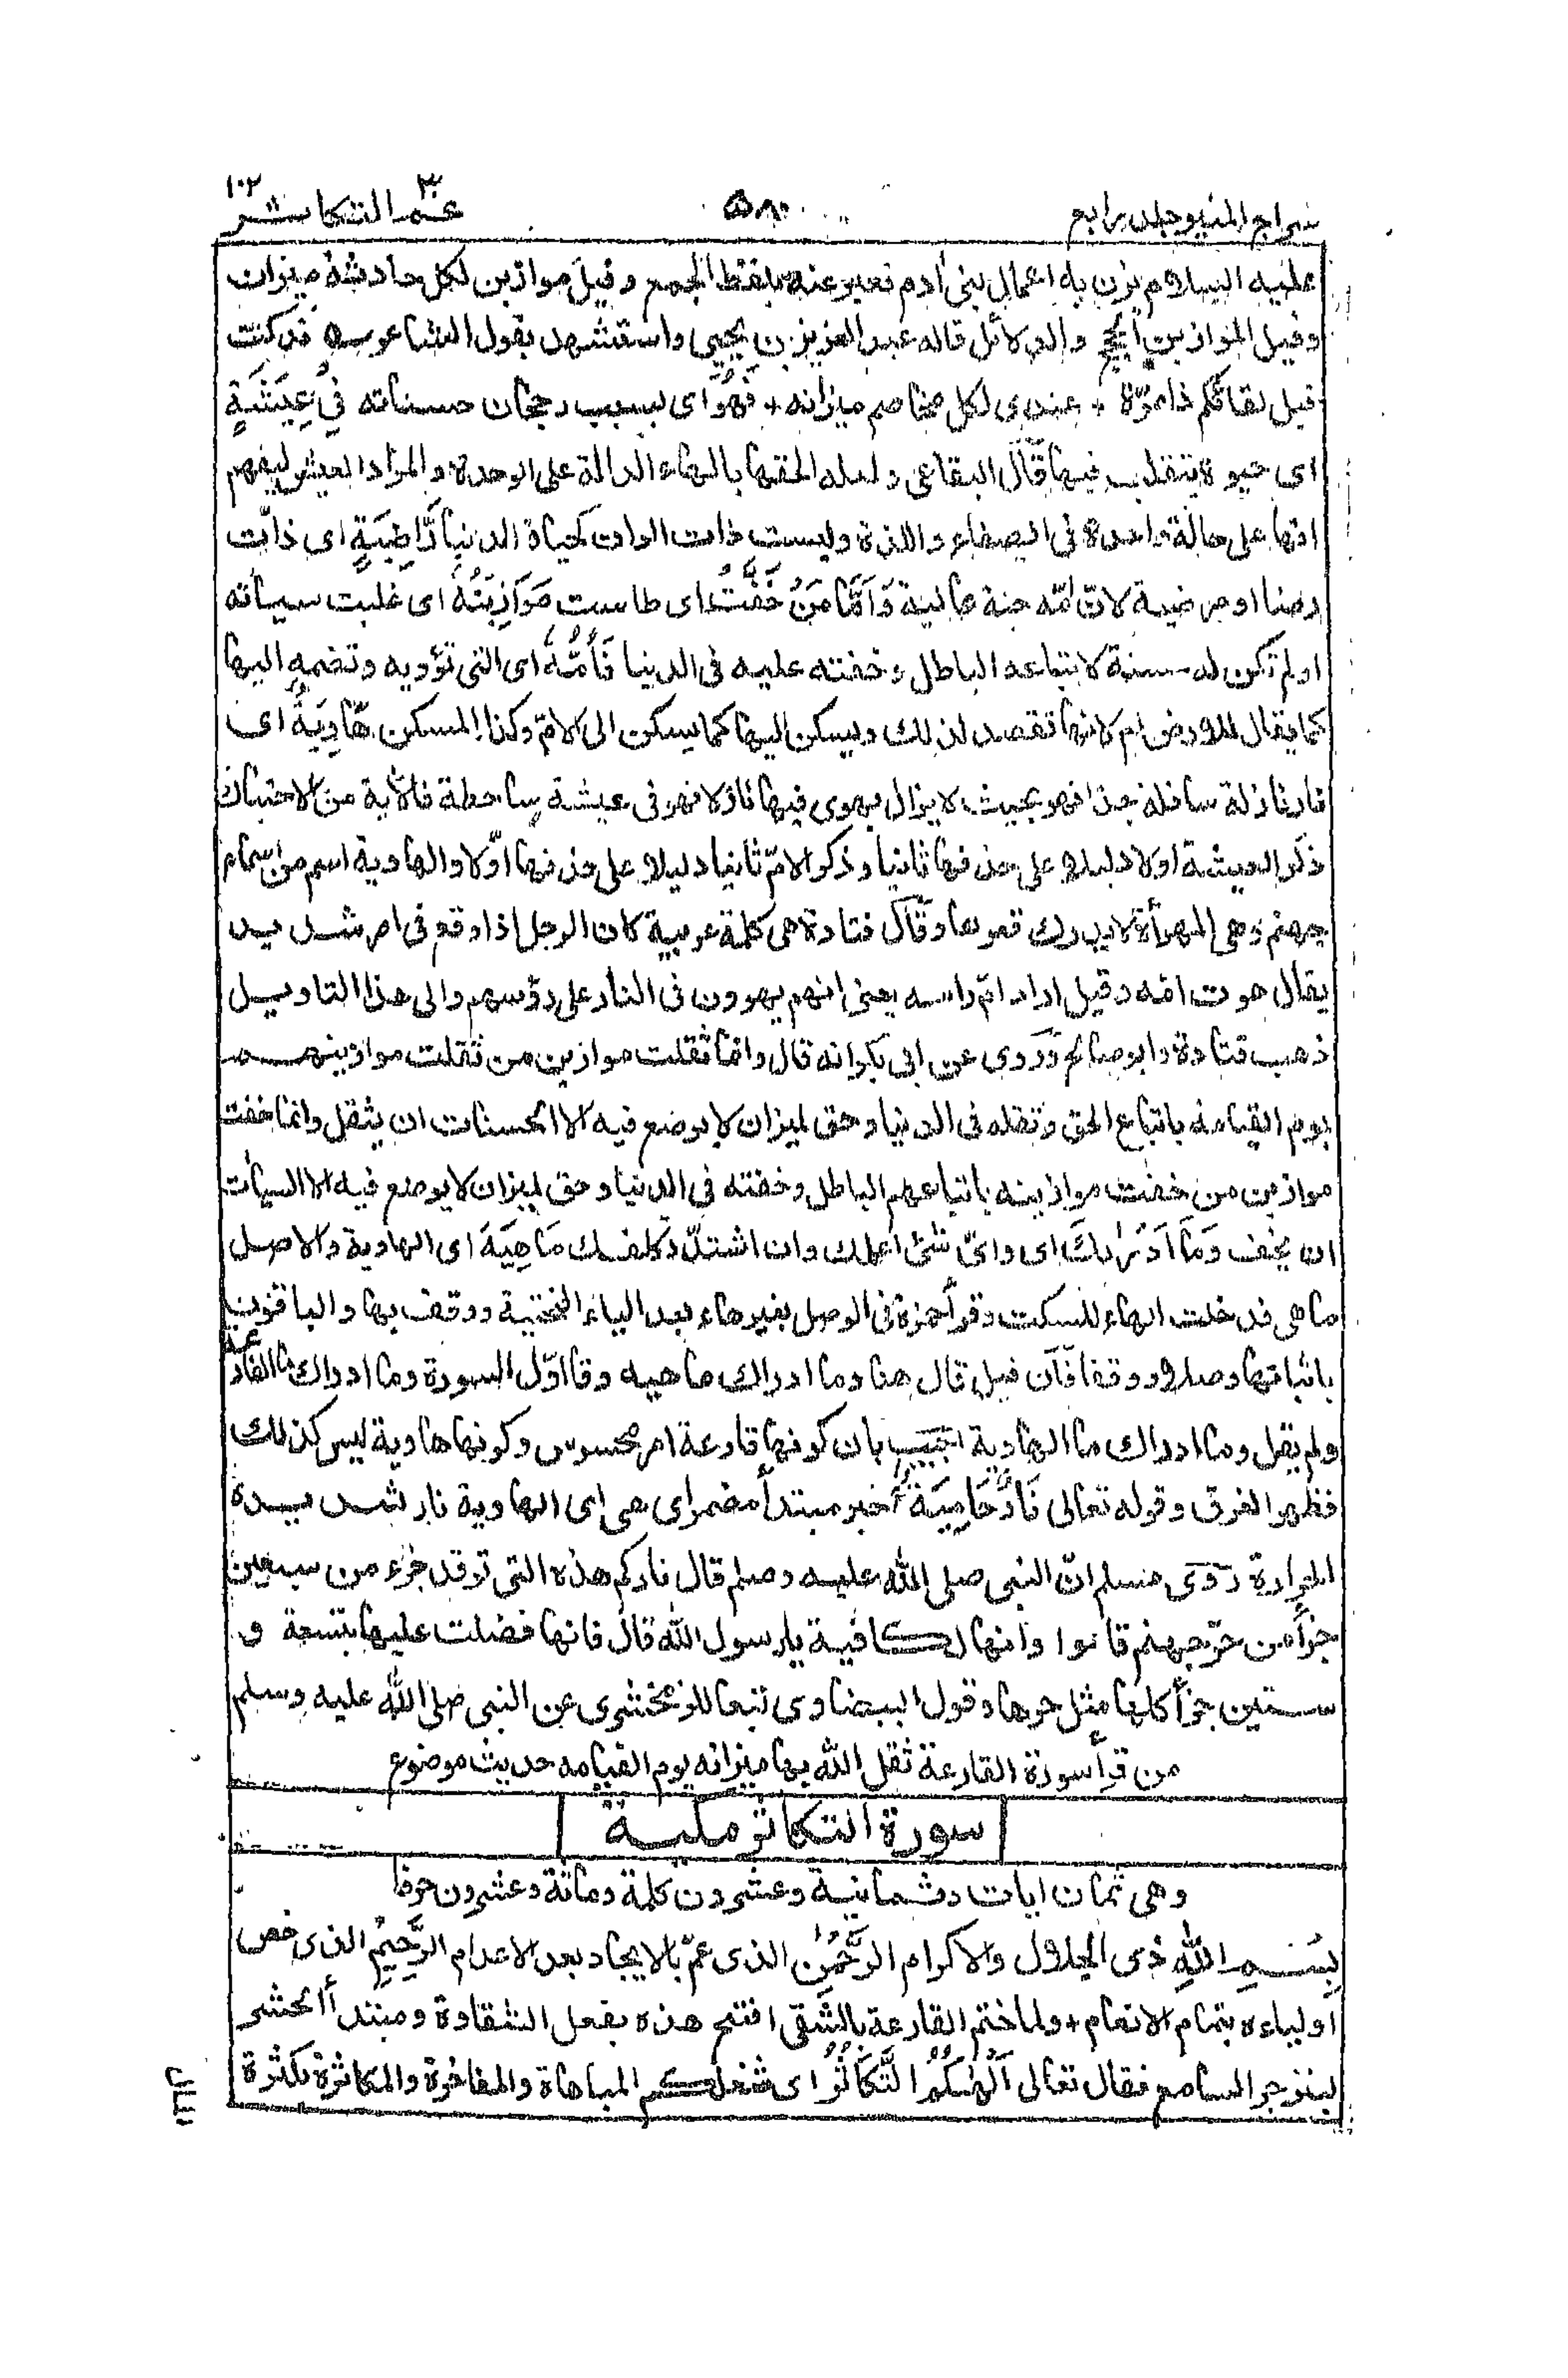 سراج المنير جلد رابع ٥٨٠ عمّ ٣٠ التكاثر ١٠٢
عليه السلام يزن به اعمال بنى أدم فعبر عنه بلفظ الجمع وقيل موازين لكل حادثة ميزان
وقيل الموازين الحجج والدلائل قاله عبد العزيز بن يحيى واستشهد بقول الشاعر قد كنت
قبل لقائكم ذا مرّة + عندى لكل مخاصم ميزانه + فَهُوَ اى بسبب رجحان حسناته فِىْ عِيْشَةٍ
اى حيوة يتقلب فيها قال البقاعى ولعله الحقها بالهاء الدالة على الوحدة والمراد العيش ليفهم
انها على حالة واحدة فى الصفاء واللذة وليست ذات الوان كحياة الدنيا رَّاضِيَةٍ اى ذات
رضا او مرضية لانّ امّه جنة عالية وَاَمَّا مَنْ خَفَّتْ اى طاشت مَوَازِيْنُهُ اى غلبت سيأته
او لم تكن له حسنة لاتباعه الباطل وخفته عليه فى الدنيا فَاُمُّهُ اى التى تؤويه وتضمه اليها
كما يقال للارض ام لانها تقصد لذلك ويسكن اليها كما يسكن الى الامّ وكذا المسكن هَاوِيَةٌ اى
نار نازلة سافلة جدا فهو بحيث لا يزال يهوى فيها نازلا فهو فى عيشة ساخطة فالأية من الاحتباك
ذكر العيشة اولا دليلا على حذفها ثانيا وذكر الامّ ثانيا دليلا على حذفها اوّلا والهاوية اسم من اسماء
جهنم وهى المهواة لا يدرك قعرها وقال قتادة هى كلمة عربية كان الرجل اذا وقع فى امر شديد
يقال هوت امّه وقيل اراد امّ راسه يعنى انهم يهوون فى النار على رؤسهم والى هذا التاويل
ذهب قتادة وابو صالح وروى عن ابى بكر انه قال وانما ثقلت موازين من ثقلت موازينهم
يوم القيامة باتباع الحق وثقله فى الدنيا وحق لميزان لا يوضع فيه الا الحسنات ان يثقل وانما خفت
موازين من خفت موازينه باتباعهم الباطل وخفته فى الدنيا وحق لميزان لا يوضع فيه الا السيأت
ان يخف وَمَا اَدْرٰىكَ اى واىّ شئ اعلمك وان اشتدّ تكلفك مَا هِيَهْ اى الهاوية والاصل
ما هى فدخلت الهاء للسكت وقرأ حمزة فى الوصل بغير هاء بعد الياء التحتية ووقف بها والباقون
باثباتها وصلا ووقفا فان قيل قال هنا وما ادراك ماهيه وقا اوّل السورة وما ادراك ما القارعة
ولم يقل وما ادراك ما الهاوية اجيب بان كونها قارعة امر محسوس وكونها هاوية ليس كذلك
فظهر الفرق وقوله تعالى نَارٌ حَامِيَةٌ خبر مبتدأ مضمر اى هى اى الهاوية نار شديدة
الحرارة روى مسلم انّ النبى صلى الله عليه وسلم قال ناركم هذه التى توقد جزء من سبعين
جزأ من حرّ جهنم قالوا وانها لكافية يا رسول الله قال فانها فضلت عليها بتسعة و
ستين جزأ كلها مثل حرها وقول البيضاوى تبعا للزمخشرى عن النبى صلى الله عليه وسلم
من قرأ سورة القارعة ثقل الله بها ميزانه يوم القيامه حديث موضوع
سورة التكاثر مكية
وهى ثمان ايات وثمانية وعشرون كلمة ومائة وعشرون حرفا
بِسْمِ اللهِ ذى الجلال والاكرام الرَّحْمٰنِ الذى عمّ بالايجاد بعد الاعدام الرَّحِيْمِ الذى خص
اولياءه بتمام الانعام + ولما ختم القارعة بالشقى افتتح هذه بفعل الشقاوة ومبتدأ الحشر
لينزجر السامع فقال تعالى اَلْهٰىكُمُ التَّكَاثُرُ اى شغلكم المباهاة والمفاخرة والمكاثرة بكثرة